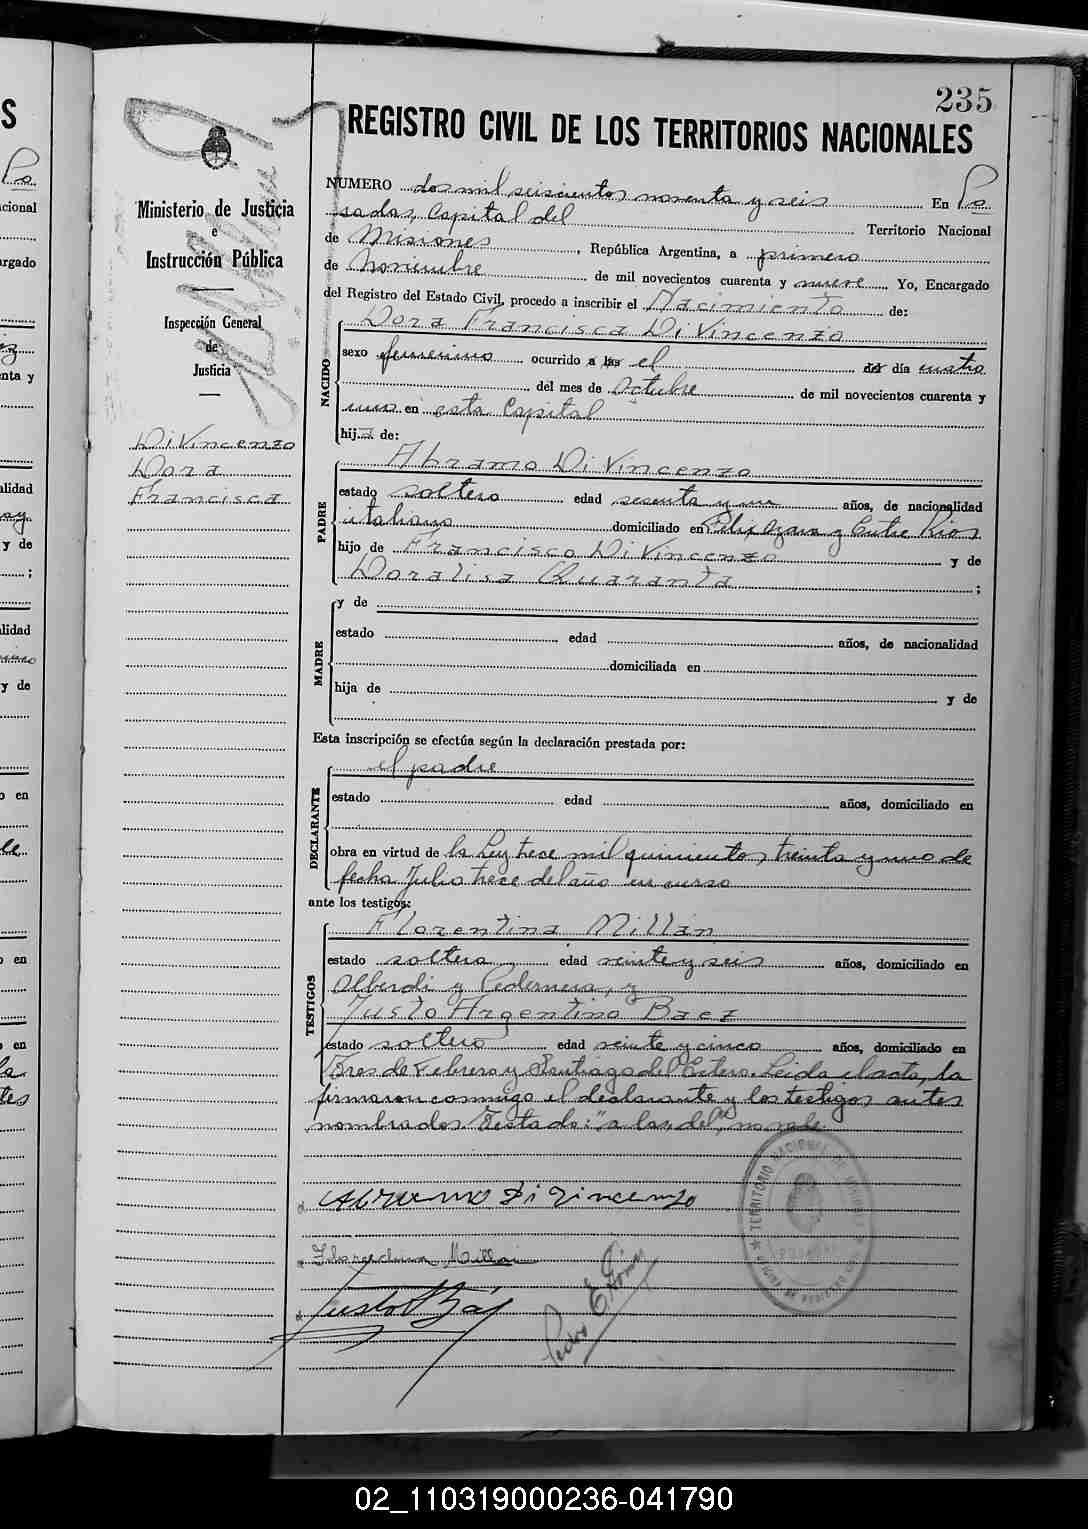 235
REGISTRO CIVIL DE LOS TERRITORIOS NACIONALES
NUMERO dos mil seiscientos noventa y seis En Po
sadas, Capital del Territorio Nacional
de Misiones, República Argentina, a primero
de Noviembre de mil novecientos cuarenta y nueve Yo, Encargado
del Registro del Estado Civil, procedo a inscribir el Nacimiento de:
Dora Francisca Di Vincenzo
NACIDO
sexo femenino ocurrido a las el del día cuatro
del mes de Octubre de mil novecientos cuarenta y
uno en esta Capital
hij de:
PADRE
Abramo Di Vincenzo
estado soltero edad sesenta y un años, de nacionalidad
italiano domiciliado en Felix Azara y Entre Rios
hijo de Francisco Di Vincenzo y de
Doralisa Quaranta ;
MADRE
y de
estado edad años, de nacionalidad
domiciliada en
hija de y de
Esta inscripción se efectúa según la declaración prestada por:
el padre
DECLARANTE
estado edad años, domiciliado en
obra en virtud de la Ley trece mil quinientos treinta y uno de
fecha Julio trece del año en curso
ante los testigos:
TESTIGOS
Florentina Millán
estado soltera edad veinte y seis años, domiciliado en
Alberdi y Pedernera, y
Justo Argentino Baez
estado soltero edad veinte y cinco años, domiciliado en
Tres de Febrero y Santiago del Estero. Leida el acta, la
firmaron conmigo el declarante y los testigos antes
nombrados. Testado: "a las, del", no vale
Abramo Di Vincenzo
Florentina Millan
Justo A Báez
Pedro E.
Ministerio de Justicia
e
Instrucción Pública
Inspección General
de
Justicia
Di Vincenzo
Dora
Francisca
TERRITORIO NACIONAL DE MISIONES
POSADAS
OFICINA DE REGISTRO CIVIL
02_110319000236-041790